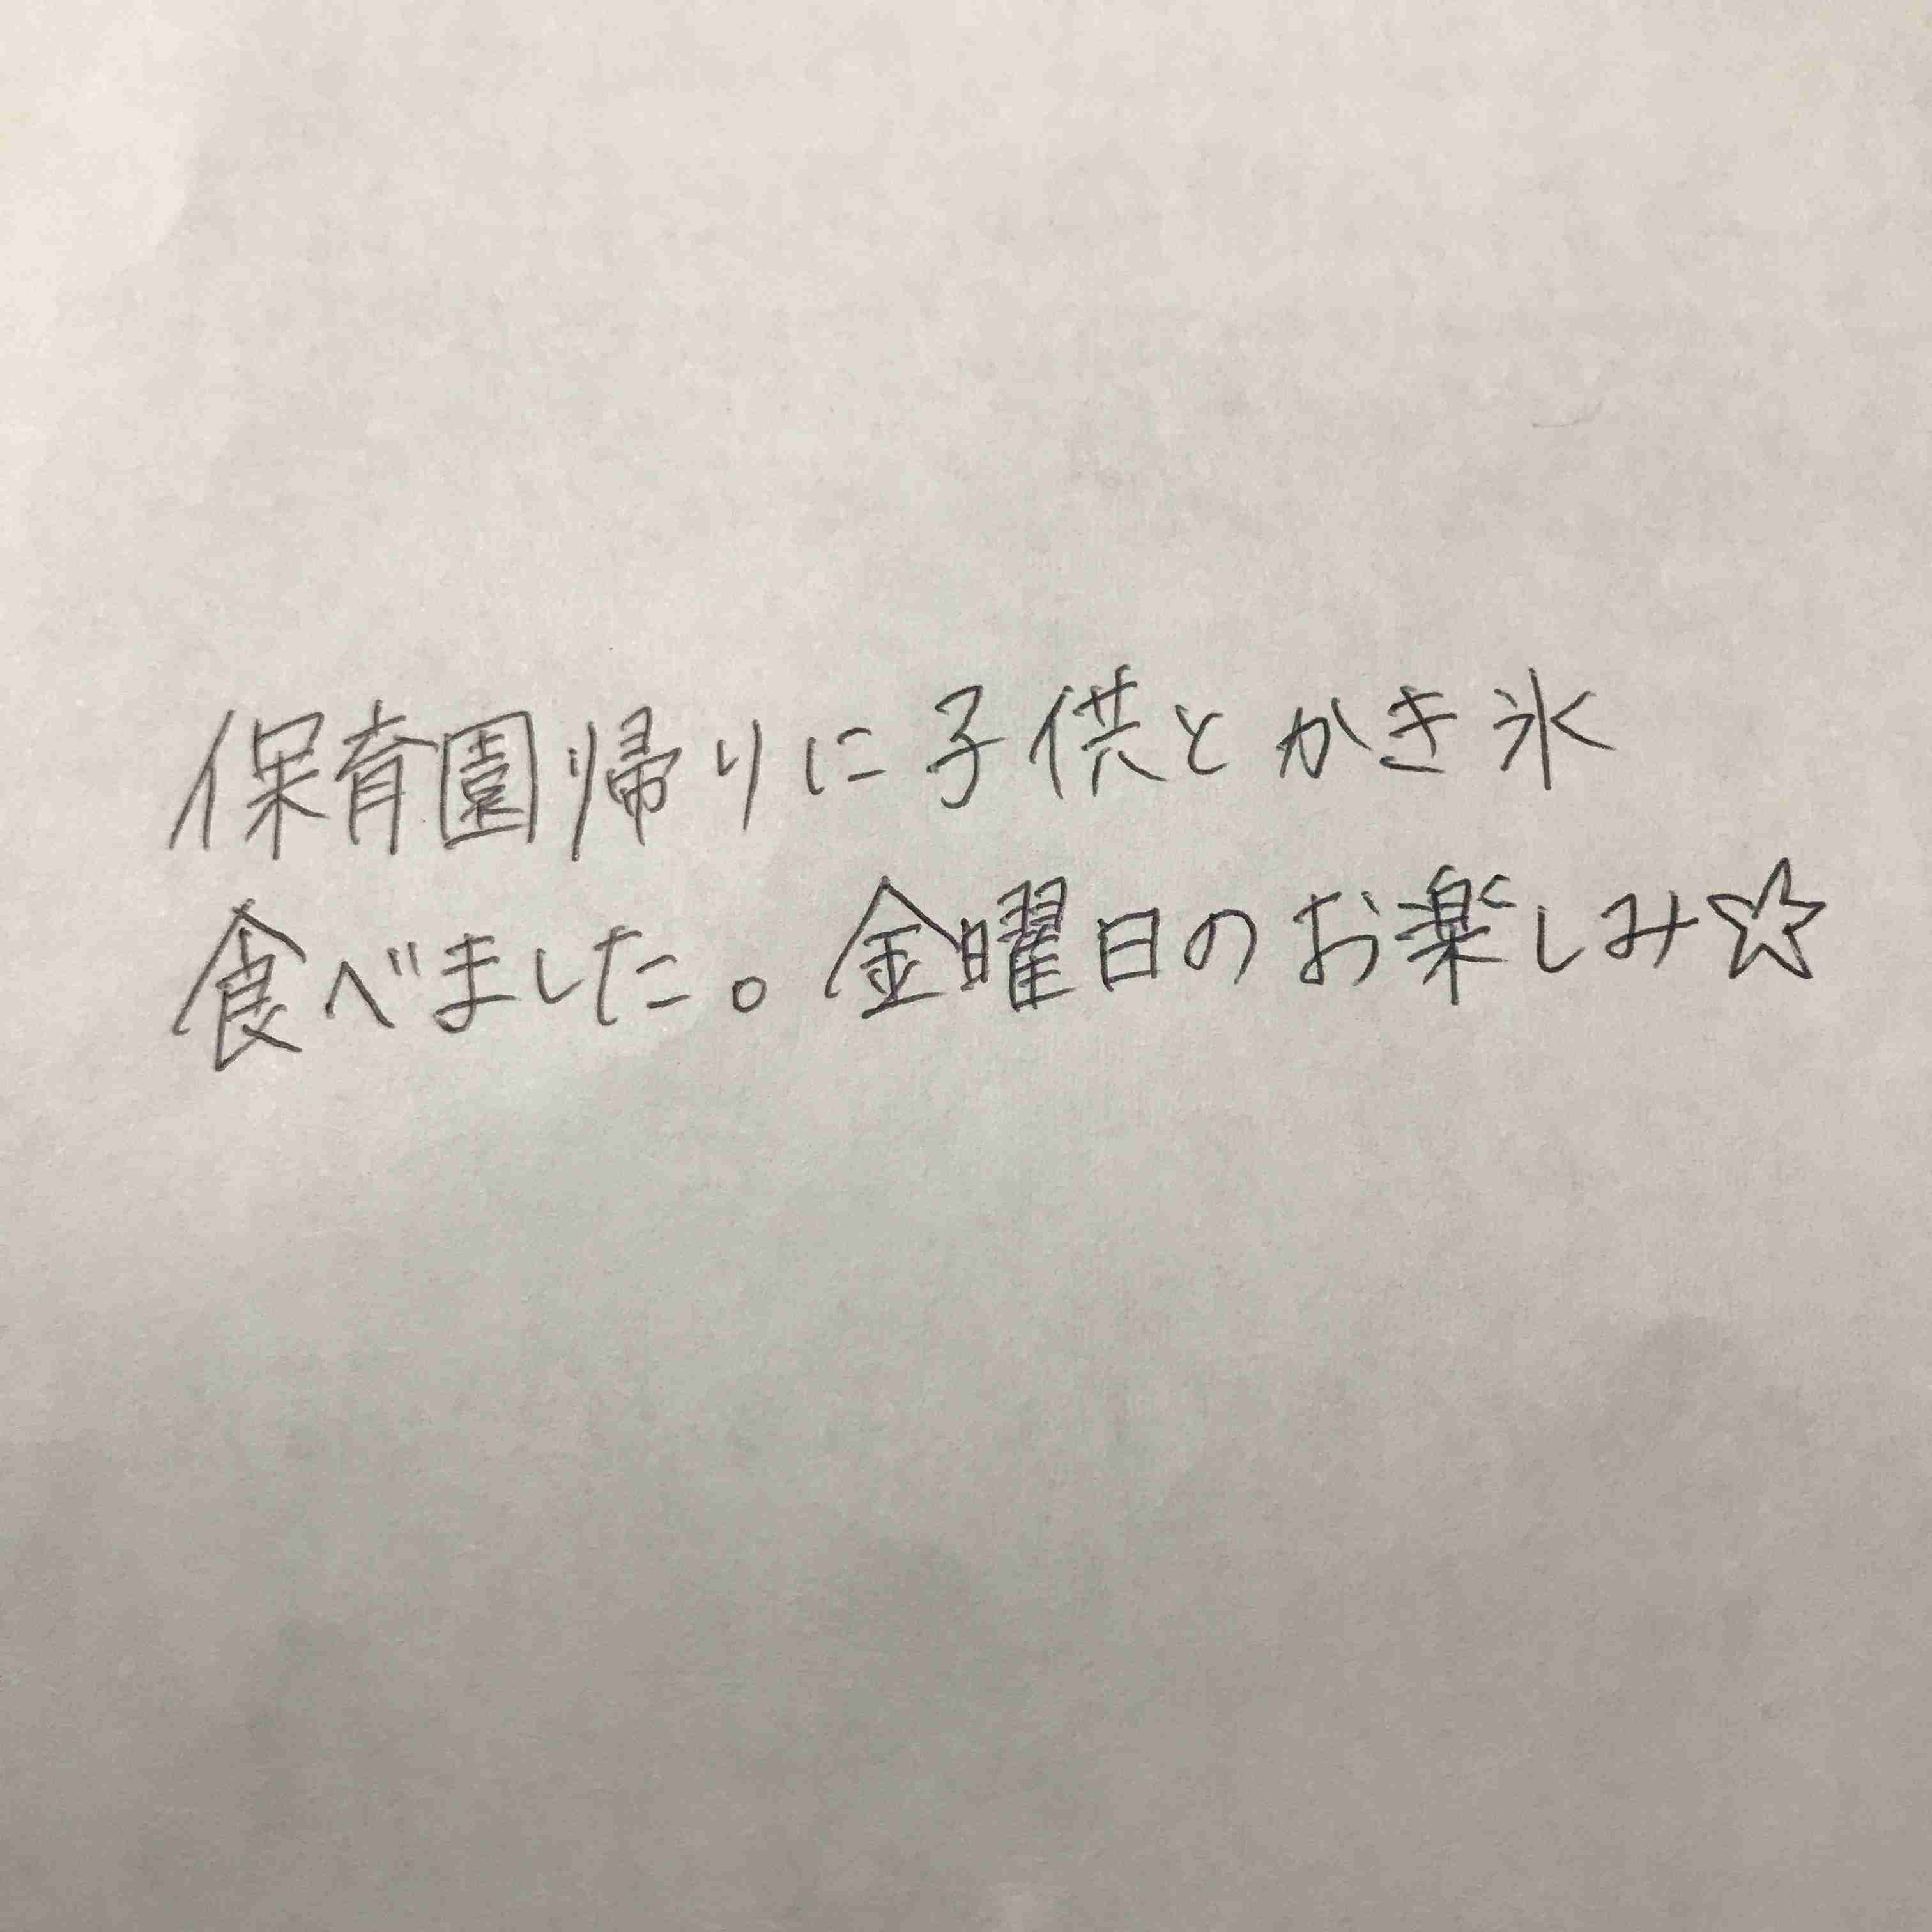 保育園帰りに子供とかき氷
食べました。金曜日のお楽しみ☆